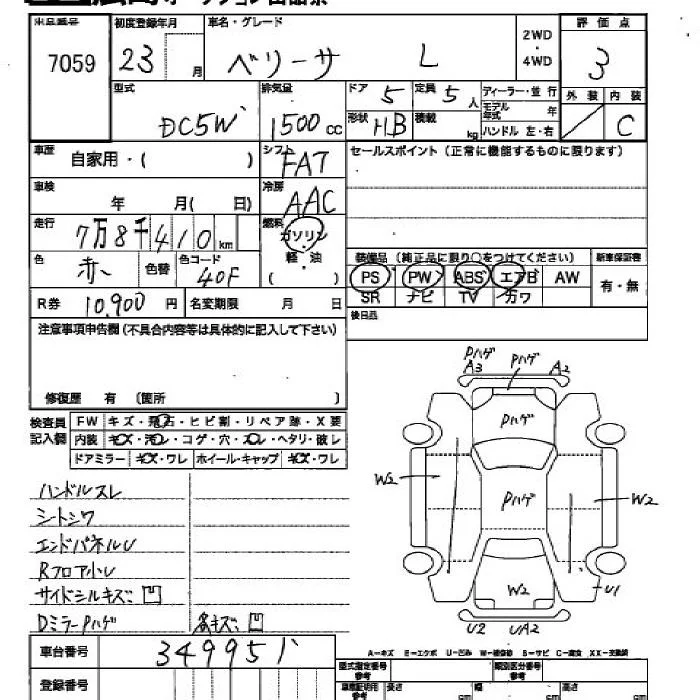 出品番号 初度登録年月 車名・グレード 2WD ・ 4WD 評価点
7059 23 月 ベリーサ L 3
型式 排気量 ドア 5 定員 5人 ディーラー・並行 外装 内装
DC5W 1500cc 形状 HB 積載 kg モデル年式 年 C
ハンドル 左・右
車歴 自家用・( ) シフト FAT セールスポイント(正常に機能するものに限ります)
車検 年 月( 日) 冷房 AAC
走行 7万8千410km 燃料 ガソリン
軽・油
( )
色 赤 色替 色コード 40F 装備品(純正品に限り○をつけてください) 新車保証書
PS PW ABS エアB AW 有・無
R券 10,900円 名変期限 月 日 SR ナビ TV カワ
注意事項申告欄(不具合内容等は具体的に記入して下さい) 後日品
修復歴 有 〔箇所 〕
検査員記入欄 FW キズ・飛石・ヒビ割・リペア跡・X要
内装 キズ・汚レ・コゲ・穴・スレ・ヘタリ・破レ
ドアミラー キズ・ワレ ホイール・キャップ キズ・ワレ
ハンドルスレ
シートシワ
エンドパネルU
Rフロア小U
サイドシルキズ凹
DミラーPハゲ 各キズ凹
Pハゲ Pハゲ
A3 A2
Pハゲ
W2 Pハゲ W2
W2 U1
U2 UA2
車台番号 349951
A-キズ E-エクボ U-凹み W-補修跡 S-サビ C-腐食 XX-交換跡
登録番号 型式指定番号 類別区分番号
長さ cm 幅 cm 高さ cm